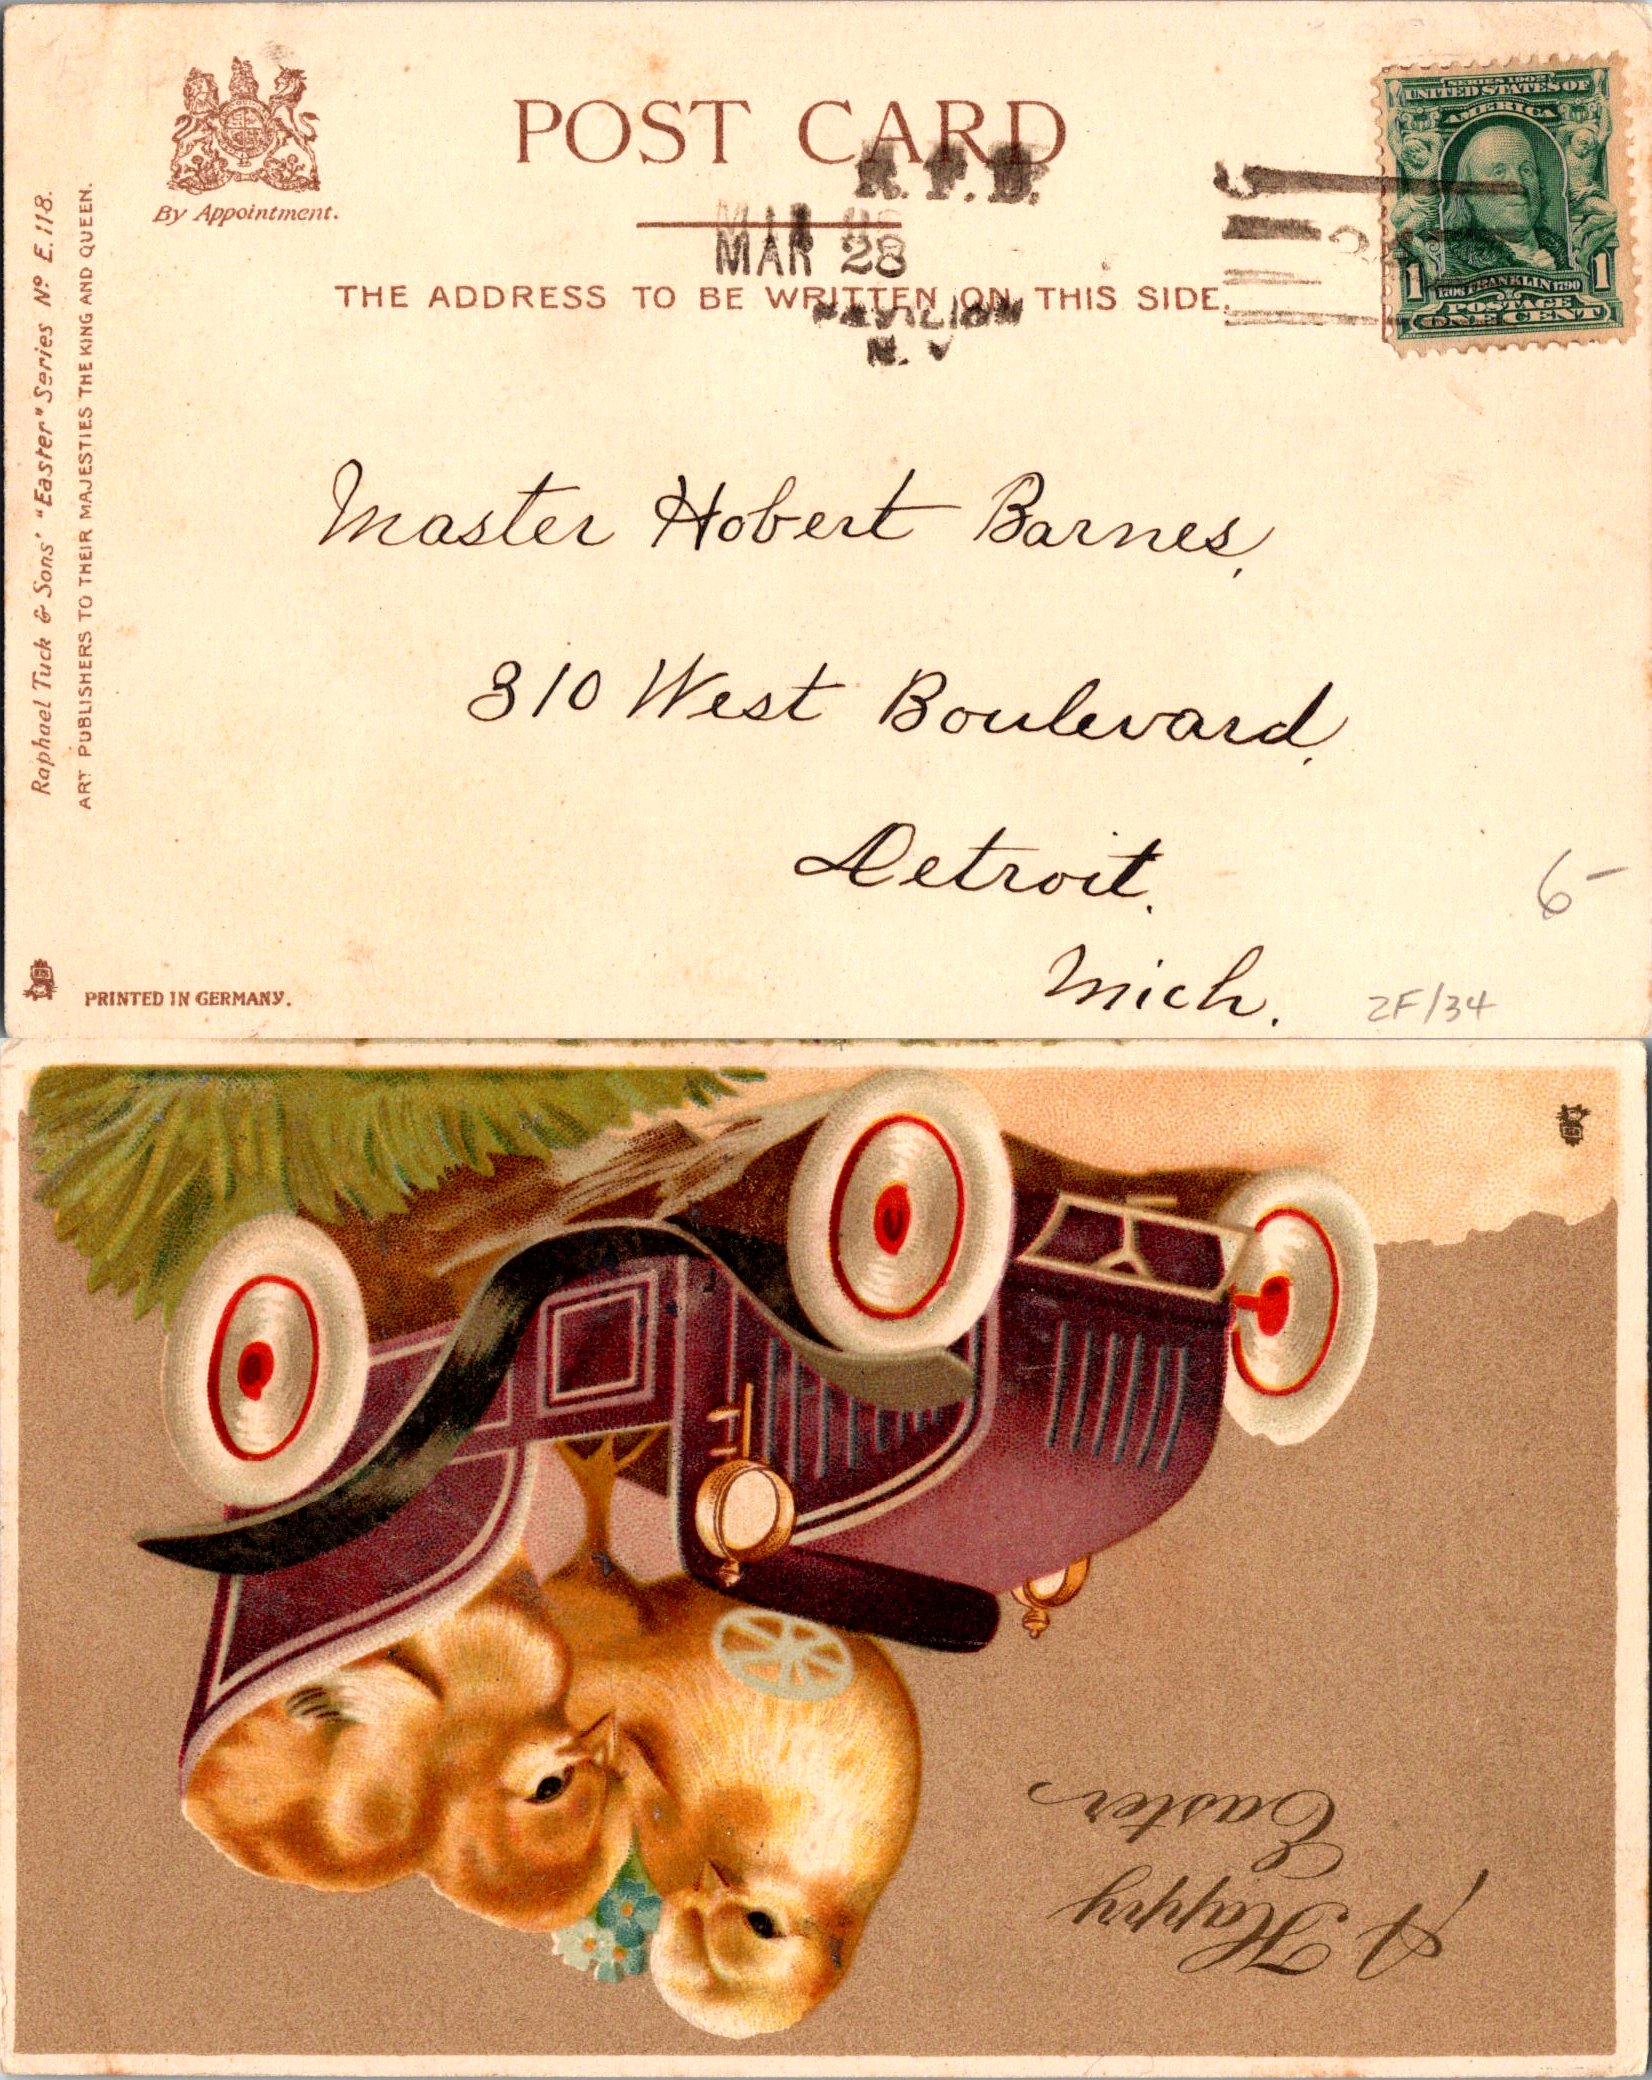 By Appointment.
POST CARD
THE ADDRESS TO BE WRITTEN ON THIS SIDE.
R.F.D.
MAR 28
PAVILION
N.Y
SERIES 1902
UNITED STATES OF
AMERICA
1 1706 FRANKLIN 1790 1
POSTAGE
ONE CENT
Raphael Tuck & Sons' "Easter" Series Nº E.118.
ART PUBLISHERS TO THEIR MAJESTIES THE KING AND QUEEN.
Master Hobert Barnes,
310 West Boulevard,
Detroit.
Mich.
6-
2F/34
PRINTED IN GERMANY.
A Happy
Easter